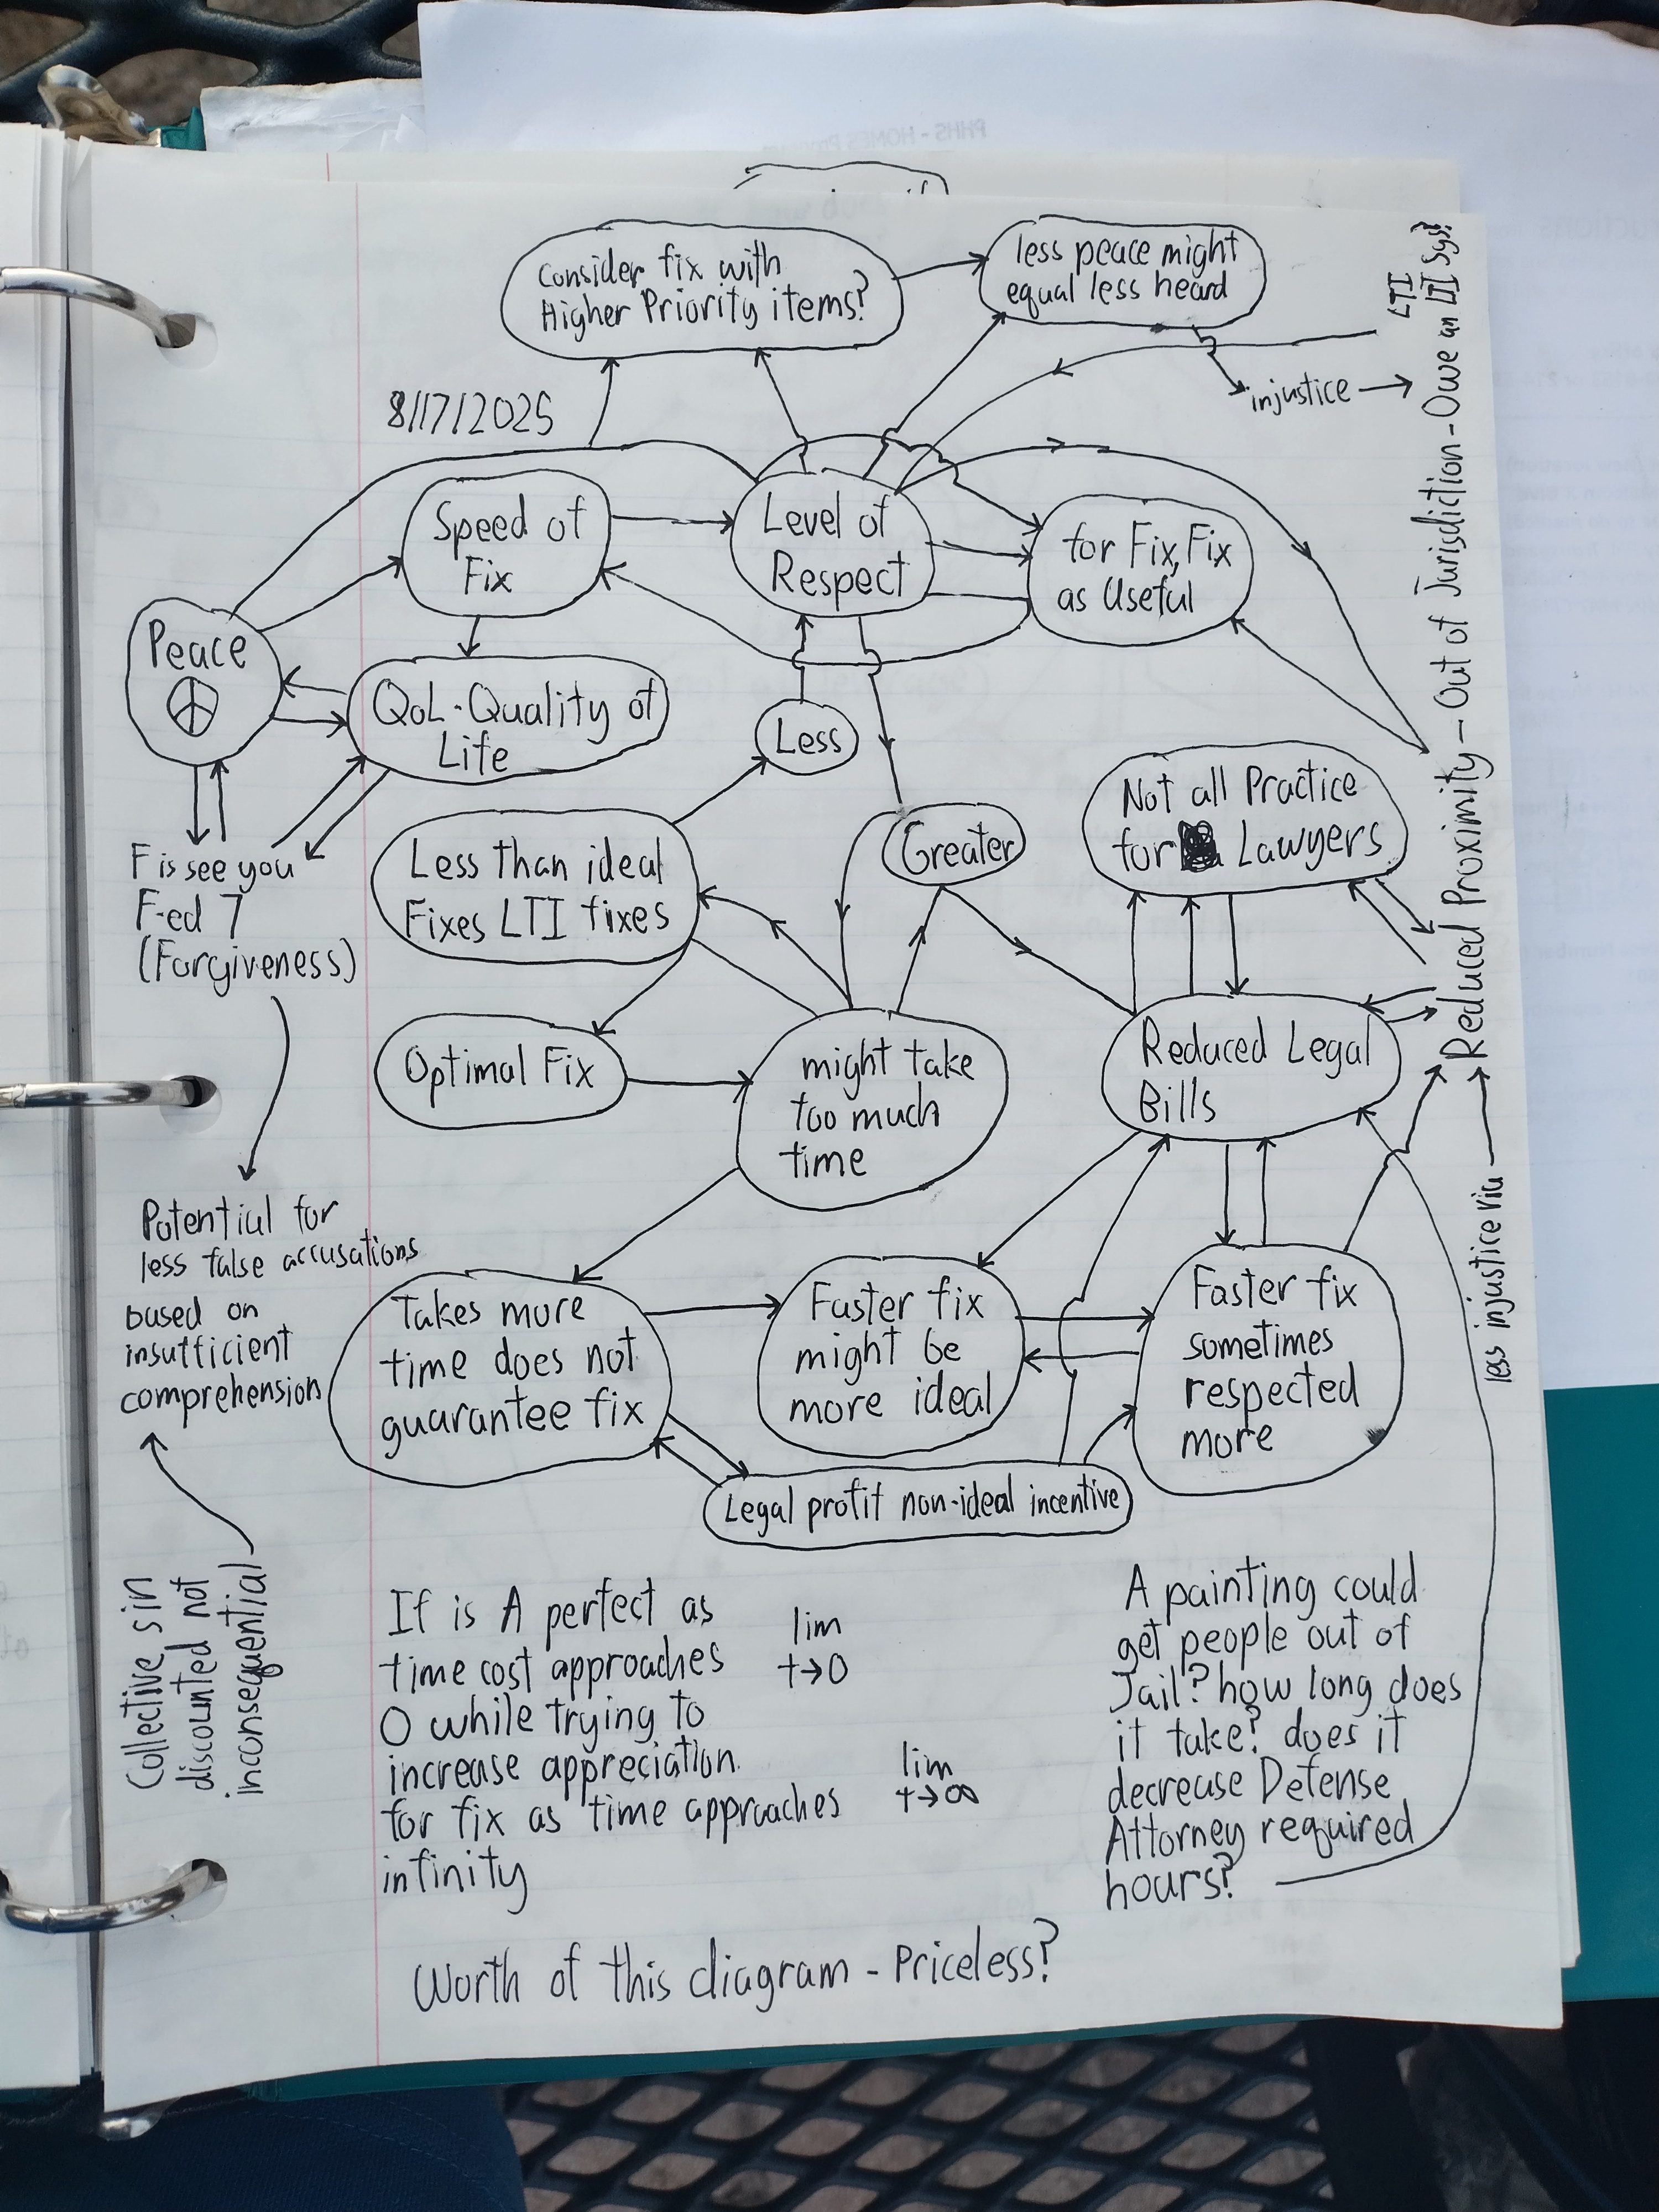 PHHS - HOMES
Consider fix with
Higher Priority items?
less peace might
equal less heard
injustice
LTI
8/17/2025
Speed of
Fix
Level of
Respect
for Fix, Fix
as Useful
Peace
QoL-Quality of
Life
Less
Greater
Not all Practice
for Lawyers
F is see you
F-ed 7
(Forgiveness)
Less than ideal
Fixes LTI fixes
Optimal Fix
might take
too much
time
Reduced Legal
Bills
Reduced Proximity - Out of Jurisdiction - Owe an LTI Sys?
less injustice via
Potential for
less false accusations
based on
insufficient
comprehension
Takes more
time does not
guarantee fix
Faster fix
might be
more ideal
Faster fix
sometimes
respected
more
Legal profit non-ideal incentive
Collective sin
discounted not
inconsequential
If is A perfect as
time cost approaches
0 while trying to
increase appreciation
for fix as time approaches
infinity
lim
t→0
lim
t→∞
A painting could
get people out of
Jail? how long does
it take? does it
decrease Defense
Attorney required
hours?
Worth of this diagram - Priceless?